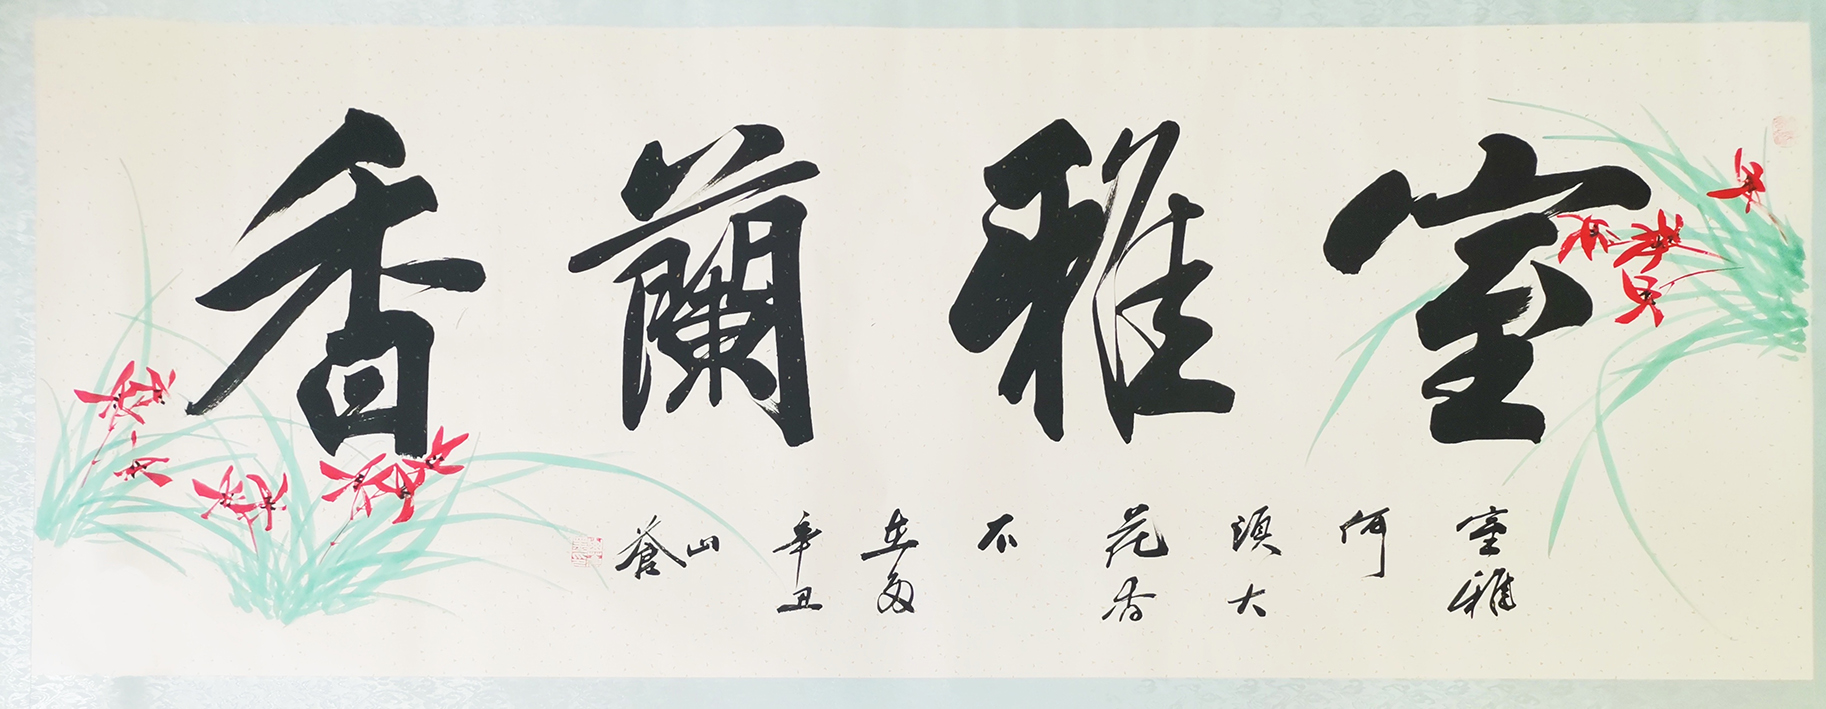 室雅蘭香
室雅何須大花香不在多
辛丑
山蒼